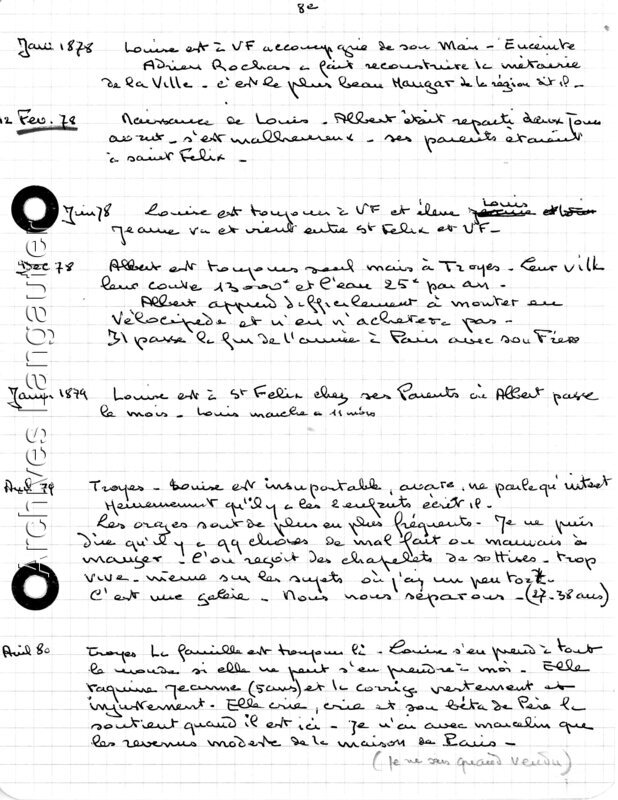 8e
Janv 1878 Louise est à VF accompagnée de son Mari - Enceinte
Adrien Rochas a fait reconstruire la métairie
de la Ville - c'est le plus beau Hangar de la région dit il -
12 Fev. 78 Naissance de Louis - Albert était reparti deux Jours
avant - s'est malheureux - ses parents étaient
à saint Felix -
Juin 78 Louise est toujours à VF et élève Louis
Jeanne va et vient entre St Felix et VF -
Dec 78 Albert est toujours seul mais à Troyes - Leur villa
leur coute 1300 et l'eau 25f par an -
Albert apprend difficilement à monter en
Vélocipède et n'en n'achetera pas -
Il passe la fin de l'année à Paris avec son Frère
Janv 1879 Louise est à St Felix chez ses Parents où Albert passe
le mois - Louis marche à 11 mois
Avril 79 Troyes - Louise est insuportable, avare, ne parle qu'intéret
Heureusement qu'il y a les 2 enfants écrit il -
Les orages sont de plus en plus fréquents - Je ne puis
dire qu'il y a 99 choses de mal fait ou mauvais à
manger - l'on reçoit des chapelets de sottises - trop
vive - même sur les sujets où j'ai un peu tort
C'est une galère - Nous nous séparons - (27-38 ans)
Avril 80 Troyes La famille est toujours là - Louise s'en prend à tout
le monde si elle ne peut s'en prendre à moi - Elle
taquine Jeanne (5 ans) et la corrige vertement et
injustement - Elle crie, crie et son bêta de Père la
soutient quand il est ici - Je n'ai avec que
les revenus modeste de la maison de Paris -
(Je ne sais quand vendu)
Archives Langauter